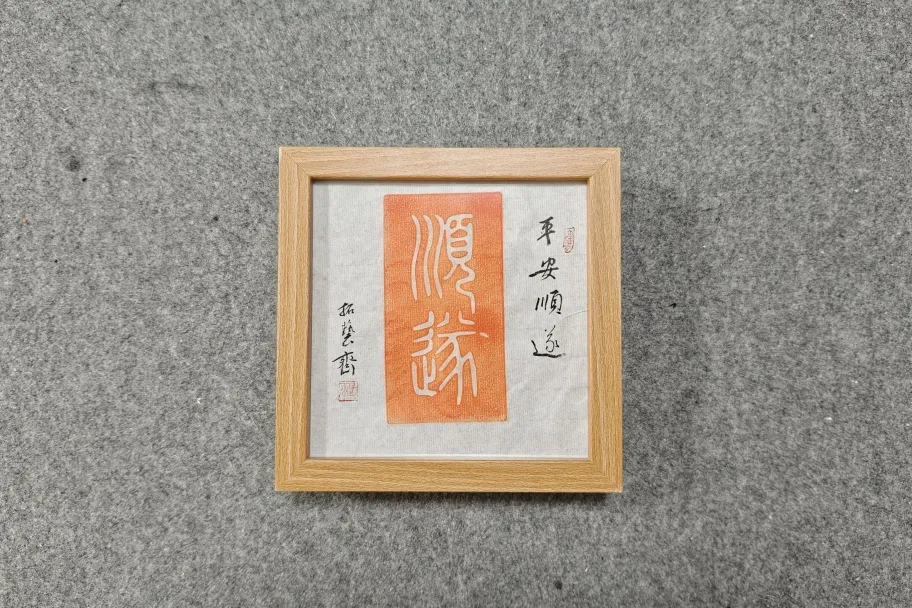 平安順遂
順遂
拓藝齋